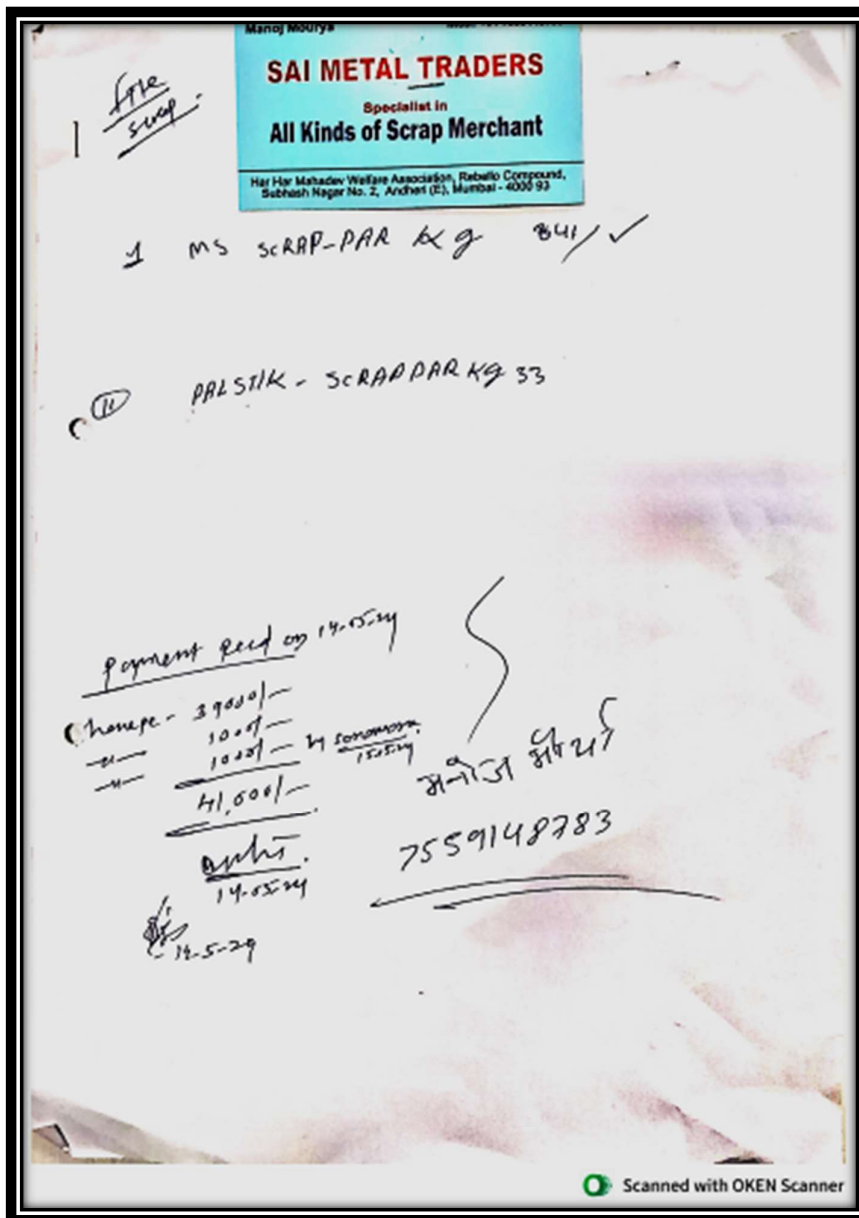 Manoj Mourya
SAI METAL TRADERS
Specialist in
All Kinds of Scrap Merchant
Har Har Mahadev Welfare Association, Rebello Compound,
Subhash Nagar No. 2, Andheri (E), Mumbai - 4000 93
scrap.
1 MS SCRAP-PAR kg 341/ ✓
11 PALSTIK - SCRAP PAR Kg 33
Payment Recd on 14-05-24
39000/-
-"- 1000/-
-"- 1000/- by 15.5.24
41,000/-
14-05-24
14-5-24
मनोज मौर्या
7559148783
Scanned with OKEN Scanner